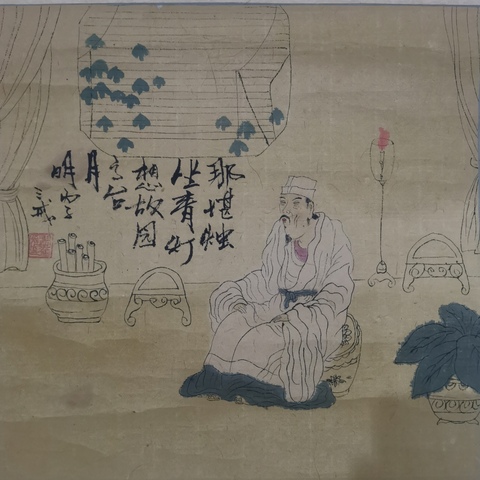 那堪独
坐青灯
想故园
高台
月
明